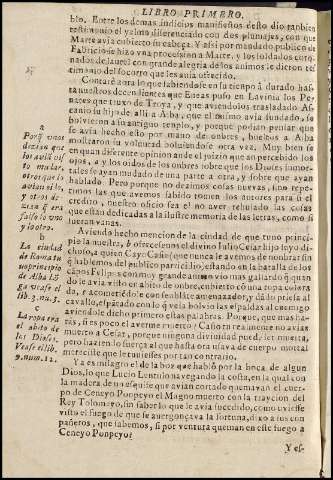 LIBRO PRIMERO.
blo. Entre los demas indicios manifiestos desto dio tambien
testimonio el yelmo diferenciado con dos plumajes, con que
Marte avia cubierto su cabeça. Y assi por mandado publico de
Fabricio se hizo vna procession a Marte, y los soldados coro-
nados de laurel con grande alegria destos animos le dieron tes-
timonio del socorro que les auia ofrecido.
Contarè aora lo que sabiendose en su tiempo à durado has-
ta nuestros decendientes que Eneas puso en Lavinia los Pe-
nates que truxo de Troya, y que aviendolos trasladado As-
canio su hijo de alli a Alba, que el mismo avia fundado, se
bolvieron a su antiguo templo, y porque podian pensar que
se avia hecho esto por mano de onbres, bueltos a Alba
mostraron su voluntad bolviendose otra vez. Muy bien se
en quan diferente opinion ande el juizio que an percebido los
ojos, a y los oidos de los onbres sobre que los Dioses inmor-
tales se ayan mudado de vna parte a otra, y sobre que ayan
hablado. Pero porque no dezimos cosas nuevas, sino repe-
timos las que avemos sabido tomen los autores para si el
credito, nuestro oficio sea el no aver rehusado las cosas
que estan dedicadas a la ilustre memoria de las letras, como si
fueran vanas.
Aviendo hecho mencion de la ciudad de que tuvo princi-
pio la nuestra, b ofrecesenos el divino Iulio Cesar hijo suyo di-
choso, a quien Cayo Casio (que nunca le avemos de nonbrar sin
q̃ hablemos del publico parricidio) estando en la batalla de los
cãpos Felipicos con muy grande animo vio mas gallardo q̃ quan-
do le avia visto en abito de onbre, cubierto cõ vna ropa colora-
da, c acometiedole con semblãte amenazador, y dãdo priesa al
cavallo, espãtado con q̃ velo bolvio las espaldas al enemigo
aviendole dicho primero estas palabras. Porque, que mas ha-
rias, si es poco el averme muerto? Casio no realmente no avias
muerto a Cesar, porque ninguna divinidad puede ser muerta,
pero haziendo fuerça al que hasta ora vsava de cuerpo mortal
mereciste que le tuviesses por tan contrario.
Ya es milagro el de la boz que hablò por la boca de algun
Dios, lo que Lucio Lentulo navegando la costa, en la qual con
la madera de un esquife que avian cortado quemavan el cuer-
po de Cneyo Ponpeyo el Magno muerto con la traycion del
Rey Tolomeo, sin saber lo que le avia sucedido, como uviesse
visto el fuego de que se auergonçava la fortuna, dixo a sus con
pañeros, que sabemos, si por ventura queman en este fuego a
Cneyo Ponpeyo?
Y es-
a
Porq̃ vnos
dezian que
los avia vis
to mudar,
otros que lo
avian oido,
y otros de-
zian q̃ era
falso lo vno
y lo otro.
b
La ciudad
de Roma tu
uo principio
de Alba Lõ
ga vease el
lib. 3. nu. 3.
c
La ropa era
el abito de
los Dioses.
Vease el lib.
9. num. 12.